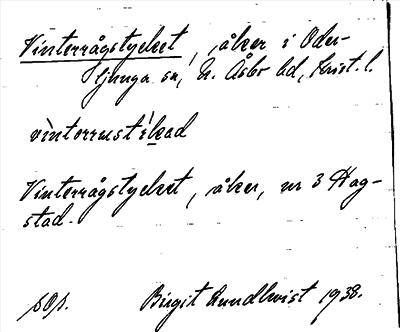 Vinterrågstycket, åker i Oder-
ljunga sn, N. Åsbo hd, Krist. l.
vintorrust ikad
Vinterrågstycket, åker, nr 3 Hag-
stad.
sOp. Birgit Lundkvist 1938.